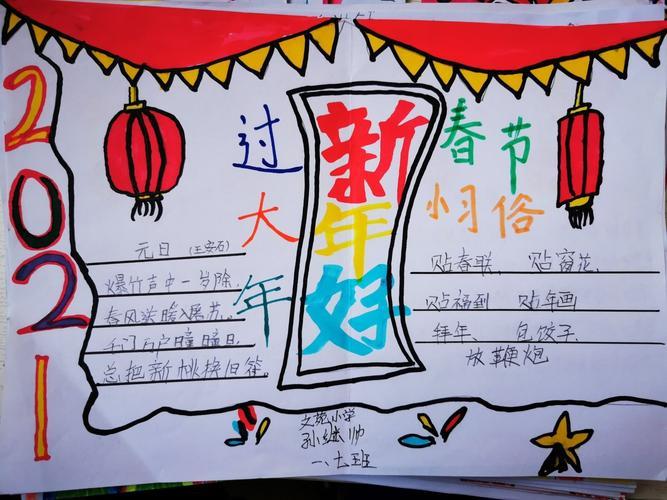 2021
过大年
新年好
春节
小习俗
元日 (王安石)
爆竹声中一岁除
春风送暖入屠苏。
千门万户瞳瞳日
总把新桃换旧符。
贴春联、贴窗花、
贴福到 贴年画
拜年、包饺子、
放鞭炮
文苑小学
孙继帅
一、七班